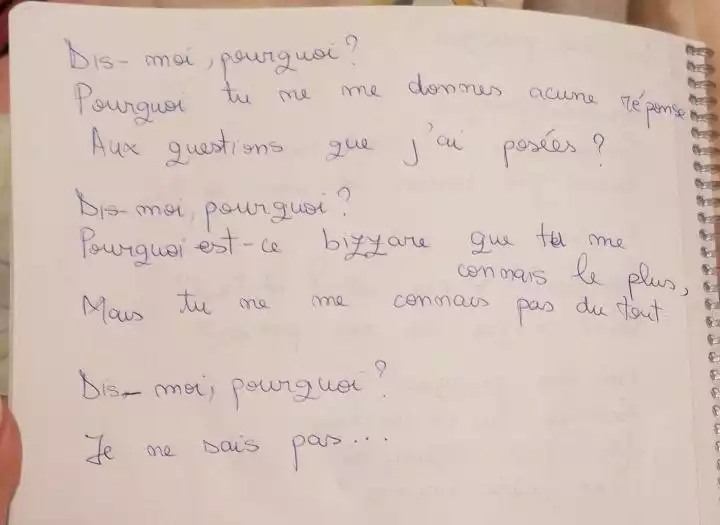 Dis-moi, pourquoi?
Pourquoi tu ne me donnes acune réponse
Aux questions que j'ai posées?
Dis-moi, pourquoi?
Pourquoi est-ce bizzare que tu me
connais le plus,
Mais tu ne me connais pas du tout
Dis-moi, pourquoi?
Je ne sais pas...